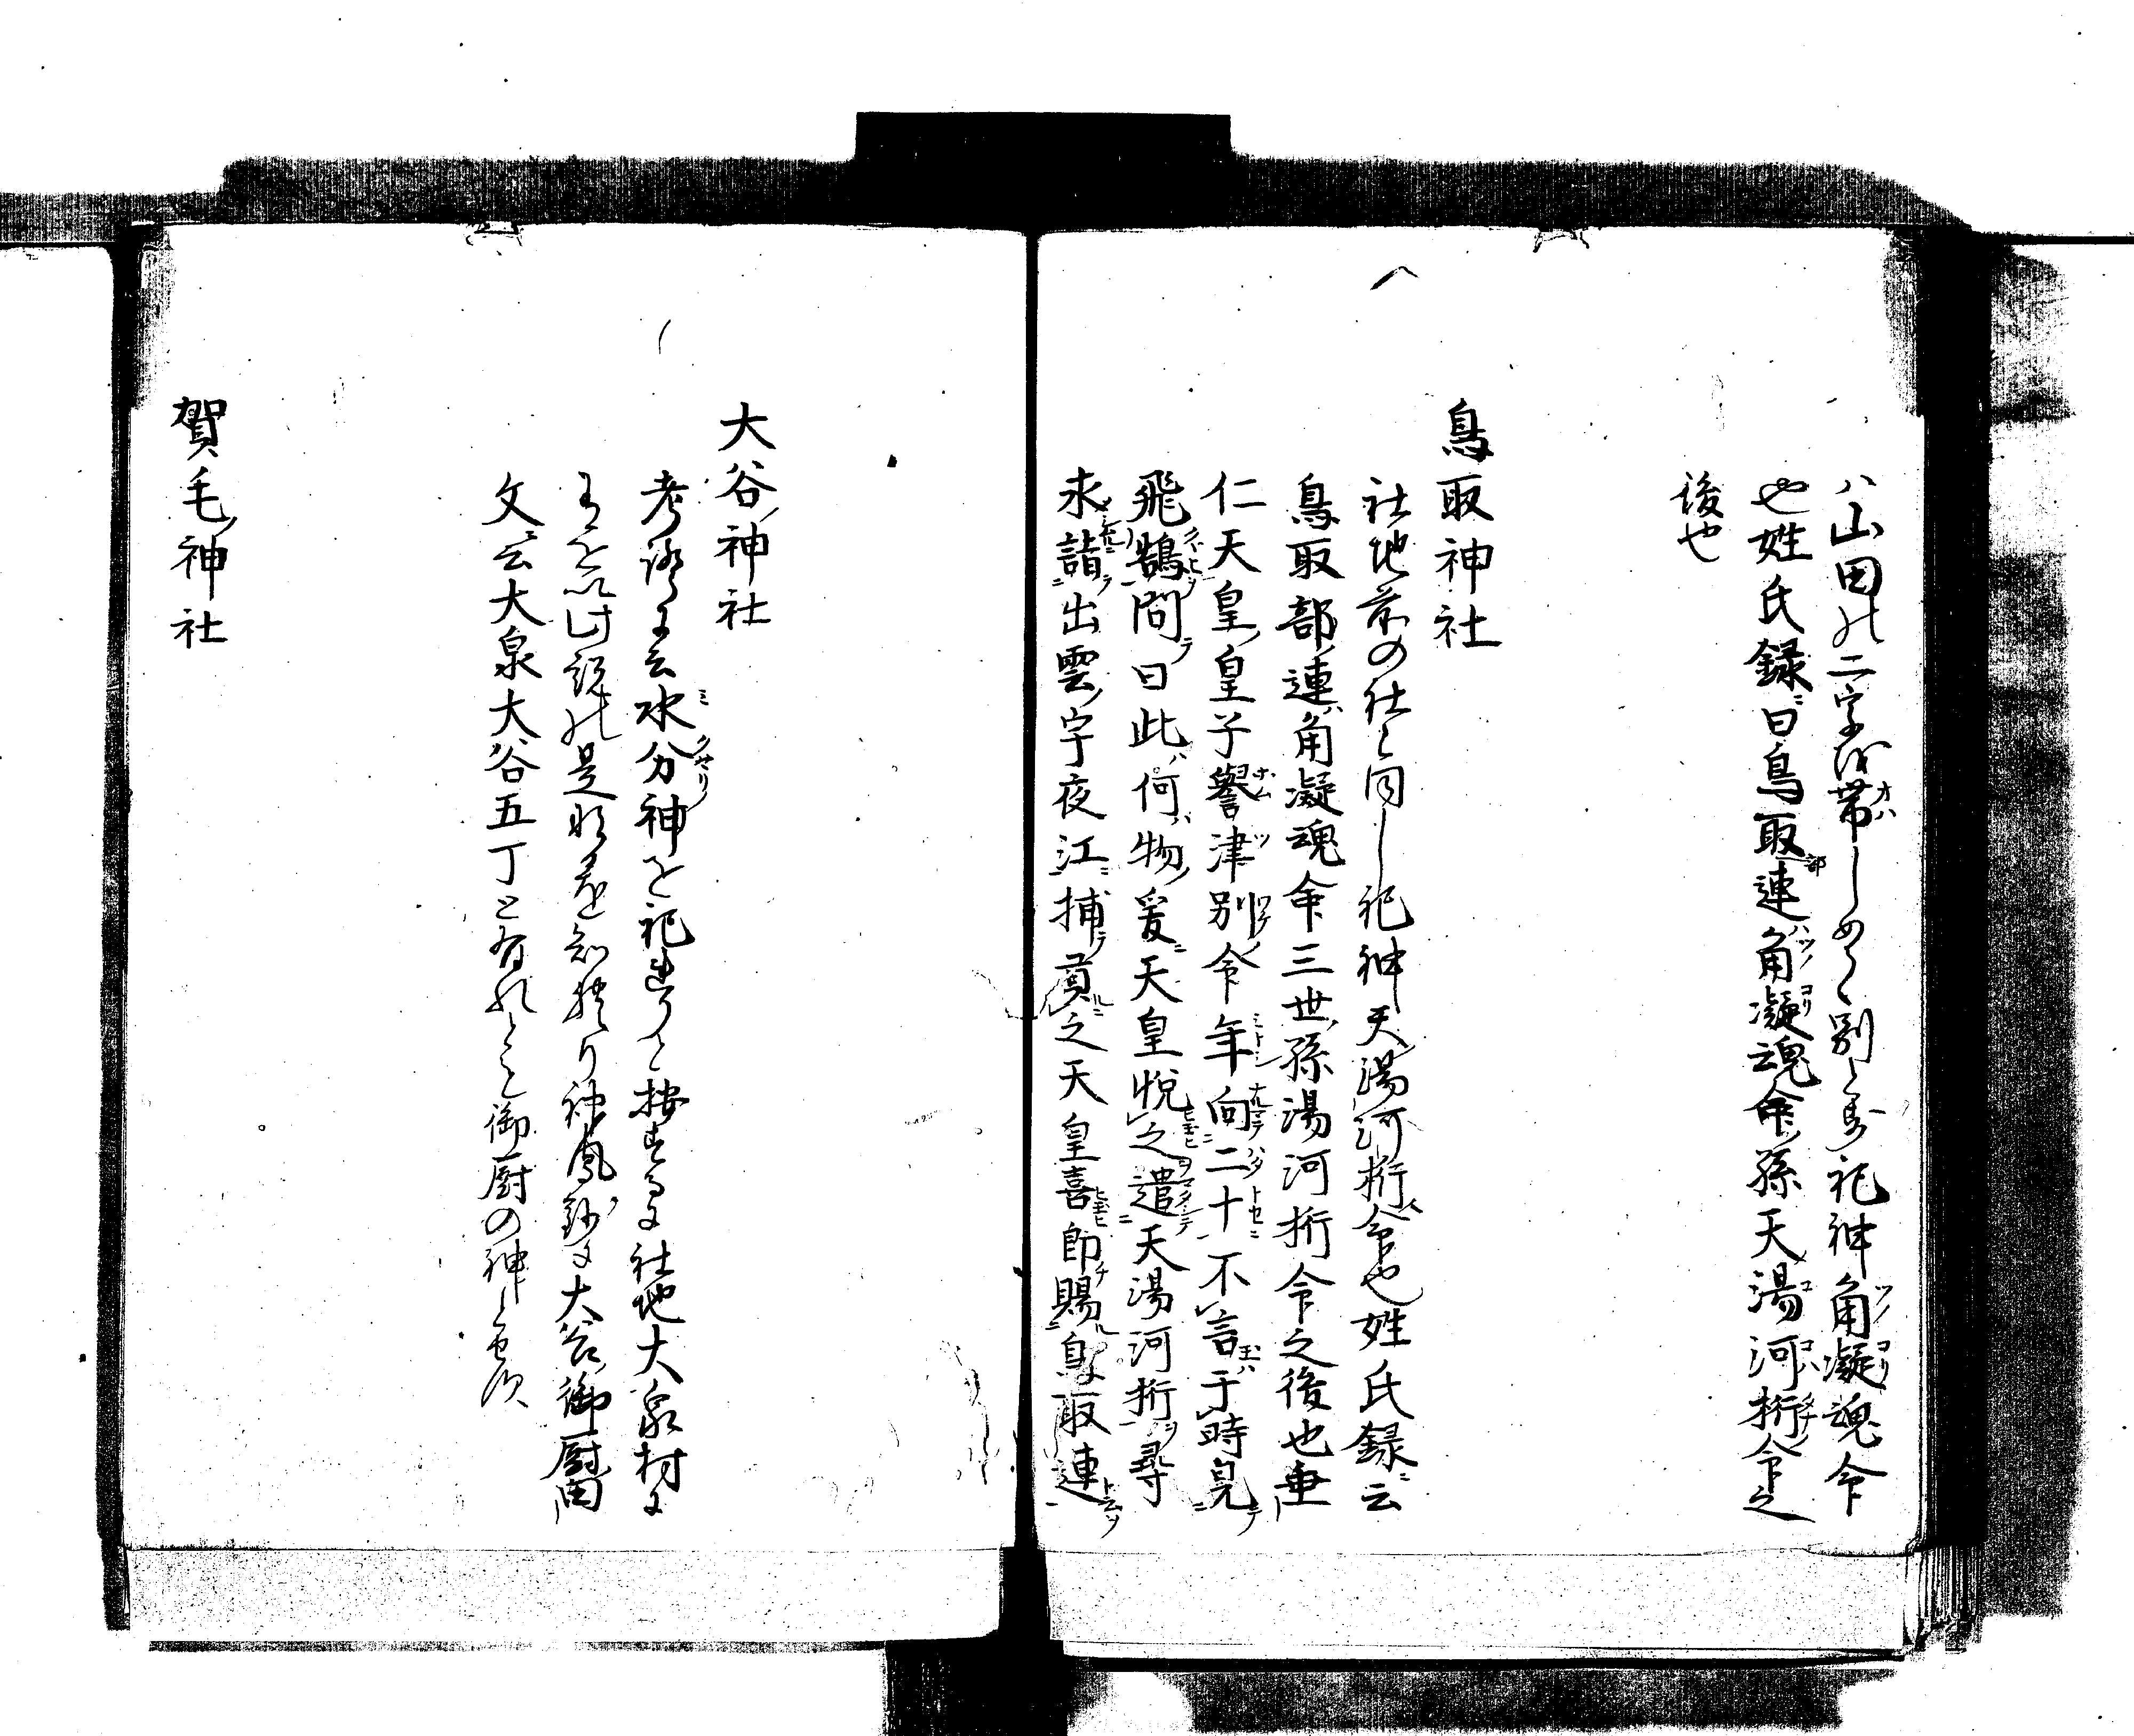 ハ山田の二字を帯しめて別と為祀神角凝魂命
也姓氏録ニ曰鳥取部連ハ角凝魂命孫天湯河桁命之
後也
鳥取神社
社地前の社と同し祀神天湯河桁命也姓氏録ニ云
鳥取部連ハ角凝魂命三世孫湯河桁命之後也垂
仁天皇皇子譽津別命年向二十不言于時見
飛鵠問曰此何物爰天皇悦之遣天湯河桁尋
求詣出雲宇夜江捕貢之天皇喜即賜鳥取連
大谷神社
水分神を祀ると按するに社地大泉村に
大谷御厨田
文ニ云大泉大谷五丁と有れとも御厨の神
賀毛神社